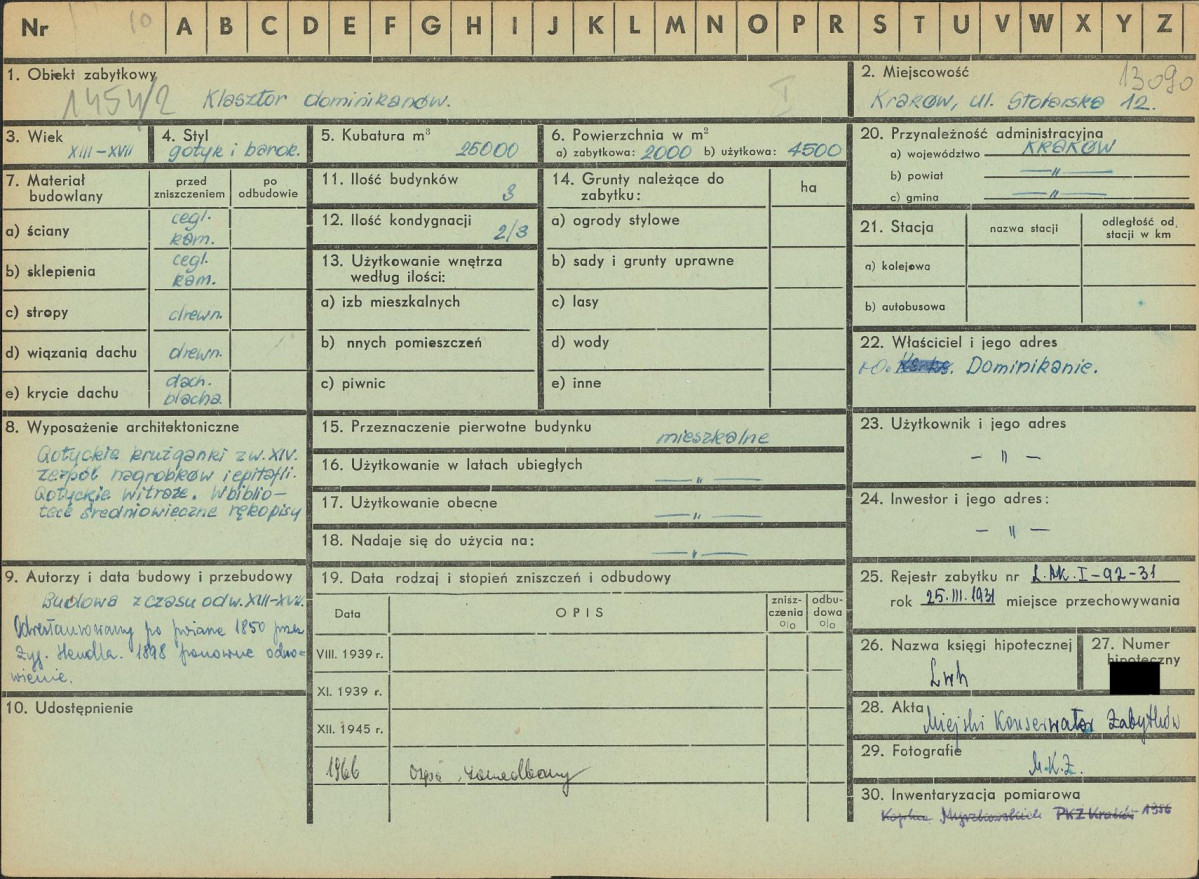 Nr 10 A B C D E F G H I J K L M N O P R S T U V W X Y Z
1. Obiekt zabytkowy
1454/2 Klasztor dominikanów. I
2. Miejscowość 13090
Kraków, ul. Stolarska 12.
3. Wiek
XIII-XVII
4. Styl
gotyk i barok.
5. Kubatura m³
25000
6. Powierzchnia w m²
a) zabytkowa: 2000 b) użytkowa: 4500
20. Przynależność administracyjna
a) województwo KRAKÓW
b) powiat —„—
c) gmina —„—
7. Materiał budowlany
przed zniszczeniem
po odbudowie
a) ściany cegl. kam.
b) sklepienia cegl. kam.
c) stropy drewn.
d) wiązania dachu drewn.
e) krycie dachu dach. blacha
11. Ilość budynków 3
12. Ilość kondygnacji 2/3
13. Użytkowanie wnętrza według ilości:
a) izb mieszkalnych
b) nnych pomieszczeń
c) piwnic
14. Grunty należące do zabytku:
ha
a) ogrody stylowe
b) sady i grunty uprawne
c) lasy
d) wody
e) inne
21. Stacja
nazwa stacji
odległość od stacji w km
a) kolejowa
b) autobusowa
22. Właściciel i jego adres
Dominikanie.
8. Wyposażenie architektoniczne
Gotyckie krużganki z w. XIV.
Zespół nagrobków i epitafii.
Gotyckie witraże. W biblio-
tece średniowieczne rękopisy
15. Przeznaczenie pierwotne budynku mieszkalne
16. Użytkowanie w latach ubiegłych —„—
17. Użytkowanie obecne —„—
18. Nadaje się do użycia na: —„—
23. Użytkownik i jego adres
—„—
24. Inwestor i jego adres:
—„—
9. Autorzy i data budowy i przebudowy
Budowa z czasu od w. XIII-XVII.
Odrestaurowany po pożarze 1850 przez
Zyg. Hendla. 1898 ponowne odno-
wienie.
10. Udostępnienie
19. Data rodzaj i stopień zniszczeń i odbudowy
Data
OPIS
znisz-
czenia
%
odbu-
dowa
%
VIII. 1939 r.
XI. 1939 r.
XII. 1945 r.
1966 zaniedbany
25. Rejestr zabytku nr L.AK.I-92-31
rok 25.III.1931 miejsce przechowywania
26. Nazwa księgi hipotecznej
Lwh
27. Numer hipoteczny
28. Akta Miejski Konserwator Zabytków
29. Fotografie
M.K.Z.
30. Inwentaryzacja pomiarowa
Kaplica Myszkowskich PKZ Kraków 1956